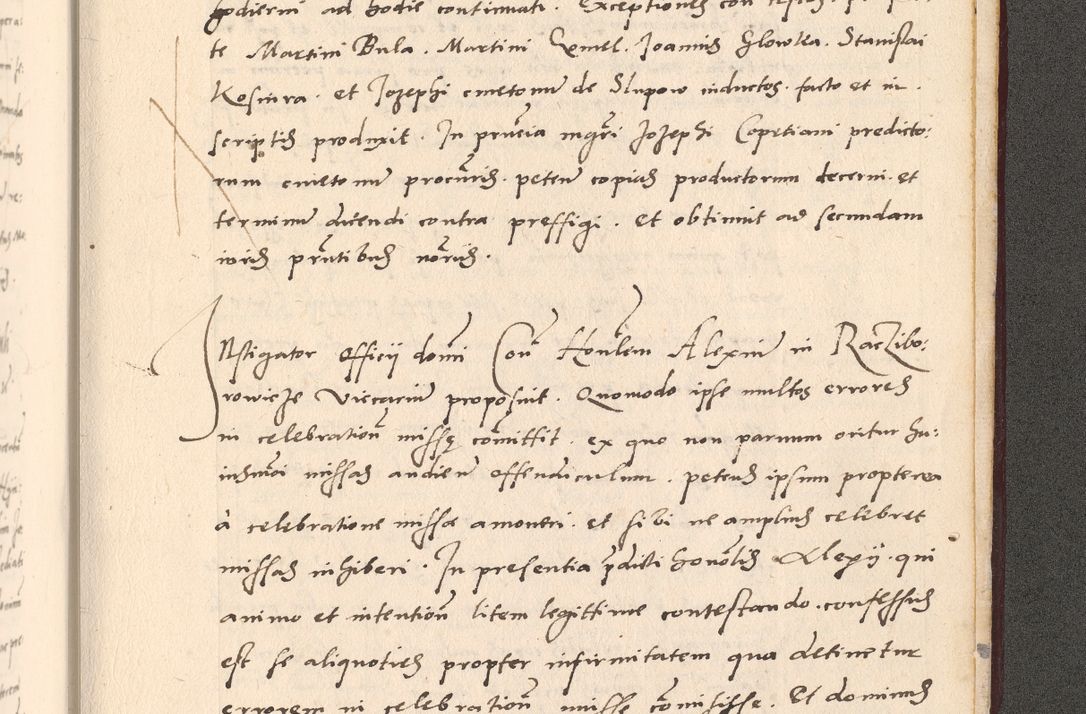 hodierni ad hodie continuati. Exceptiones con
te Martini Bula. Martini Qmel. Joannis Glowka. Stanislai
Kosmra. et Jozephi cmetonu de Slupow inductos. facto et in.
scriptis produxit. In pnŕcia mgri Jozephi Copetiani predicto:
rum cmetonu procuris. peten copias productorum decerni. et
terminu dicendi contra preffigi. Et obtinuit ad secundam
iuris pntibus noriis.
INstigator officij domi Con Honlem Alexiu in Raczibo:
rowicze Viccariu proposuit. Quomodo ipse multos errores
in celebration missę comittit. ex quo non parvum oritur hu:
iusmoi missas audien offendiculum. petens ipsum propterea
à celebratione missæ amoveri. et sibi ne amplius celebret
missas inhiberi. In presentia pdicti honolis Alexij. qui
animo et intention litem legittime contestando. confessus
est se aliquoties propter infirmitatem qua detinetur
errorem in celebration misse comisisse. Et dominus